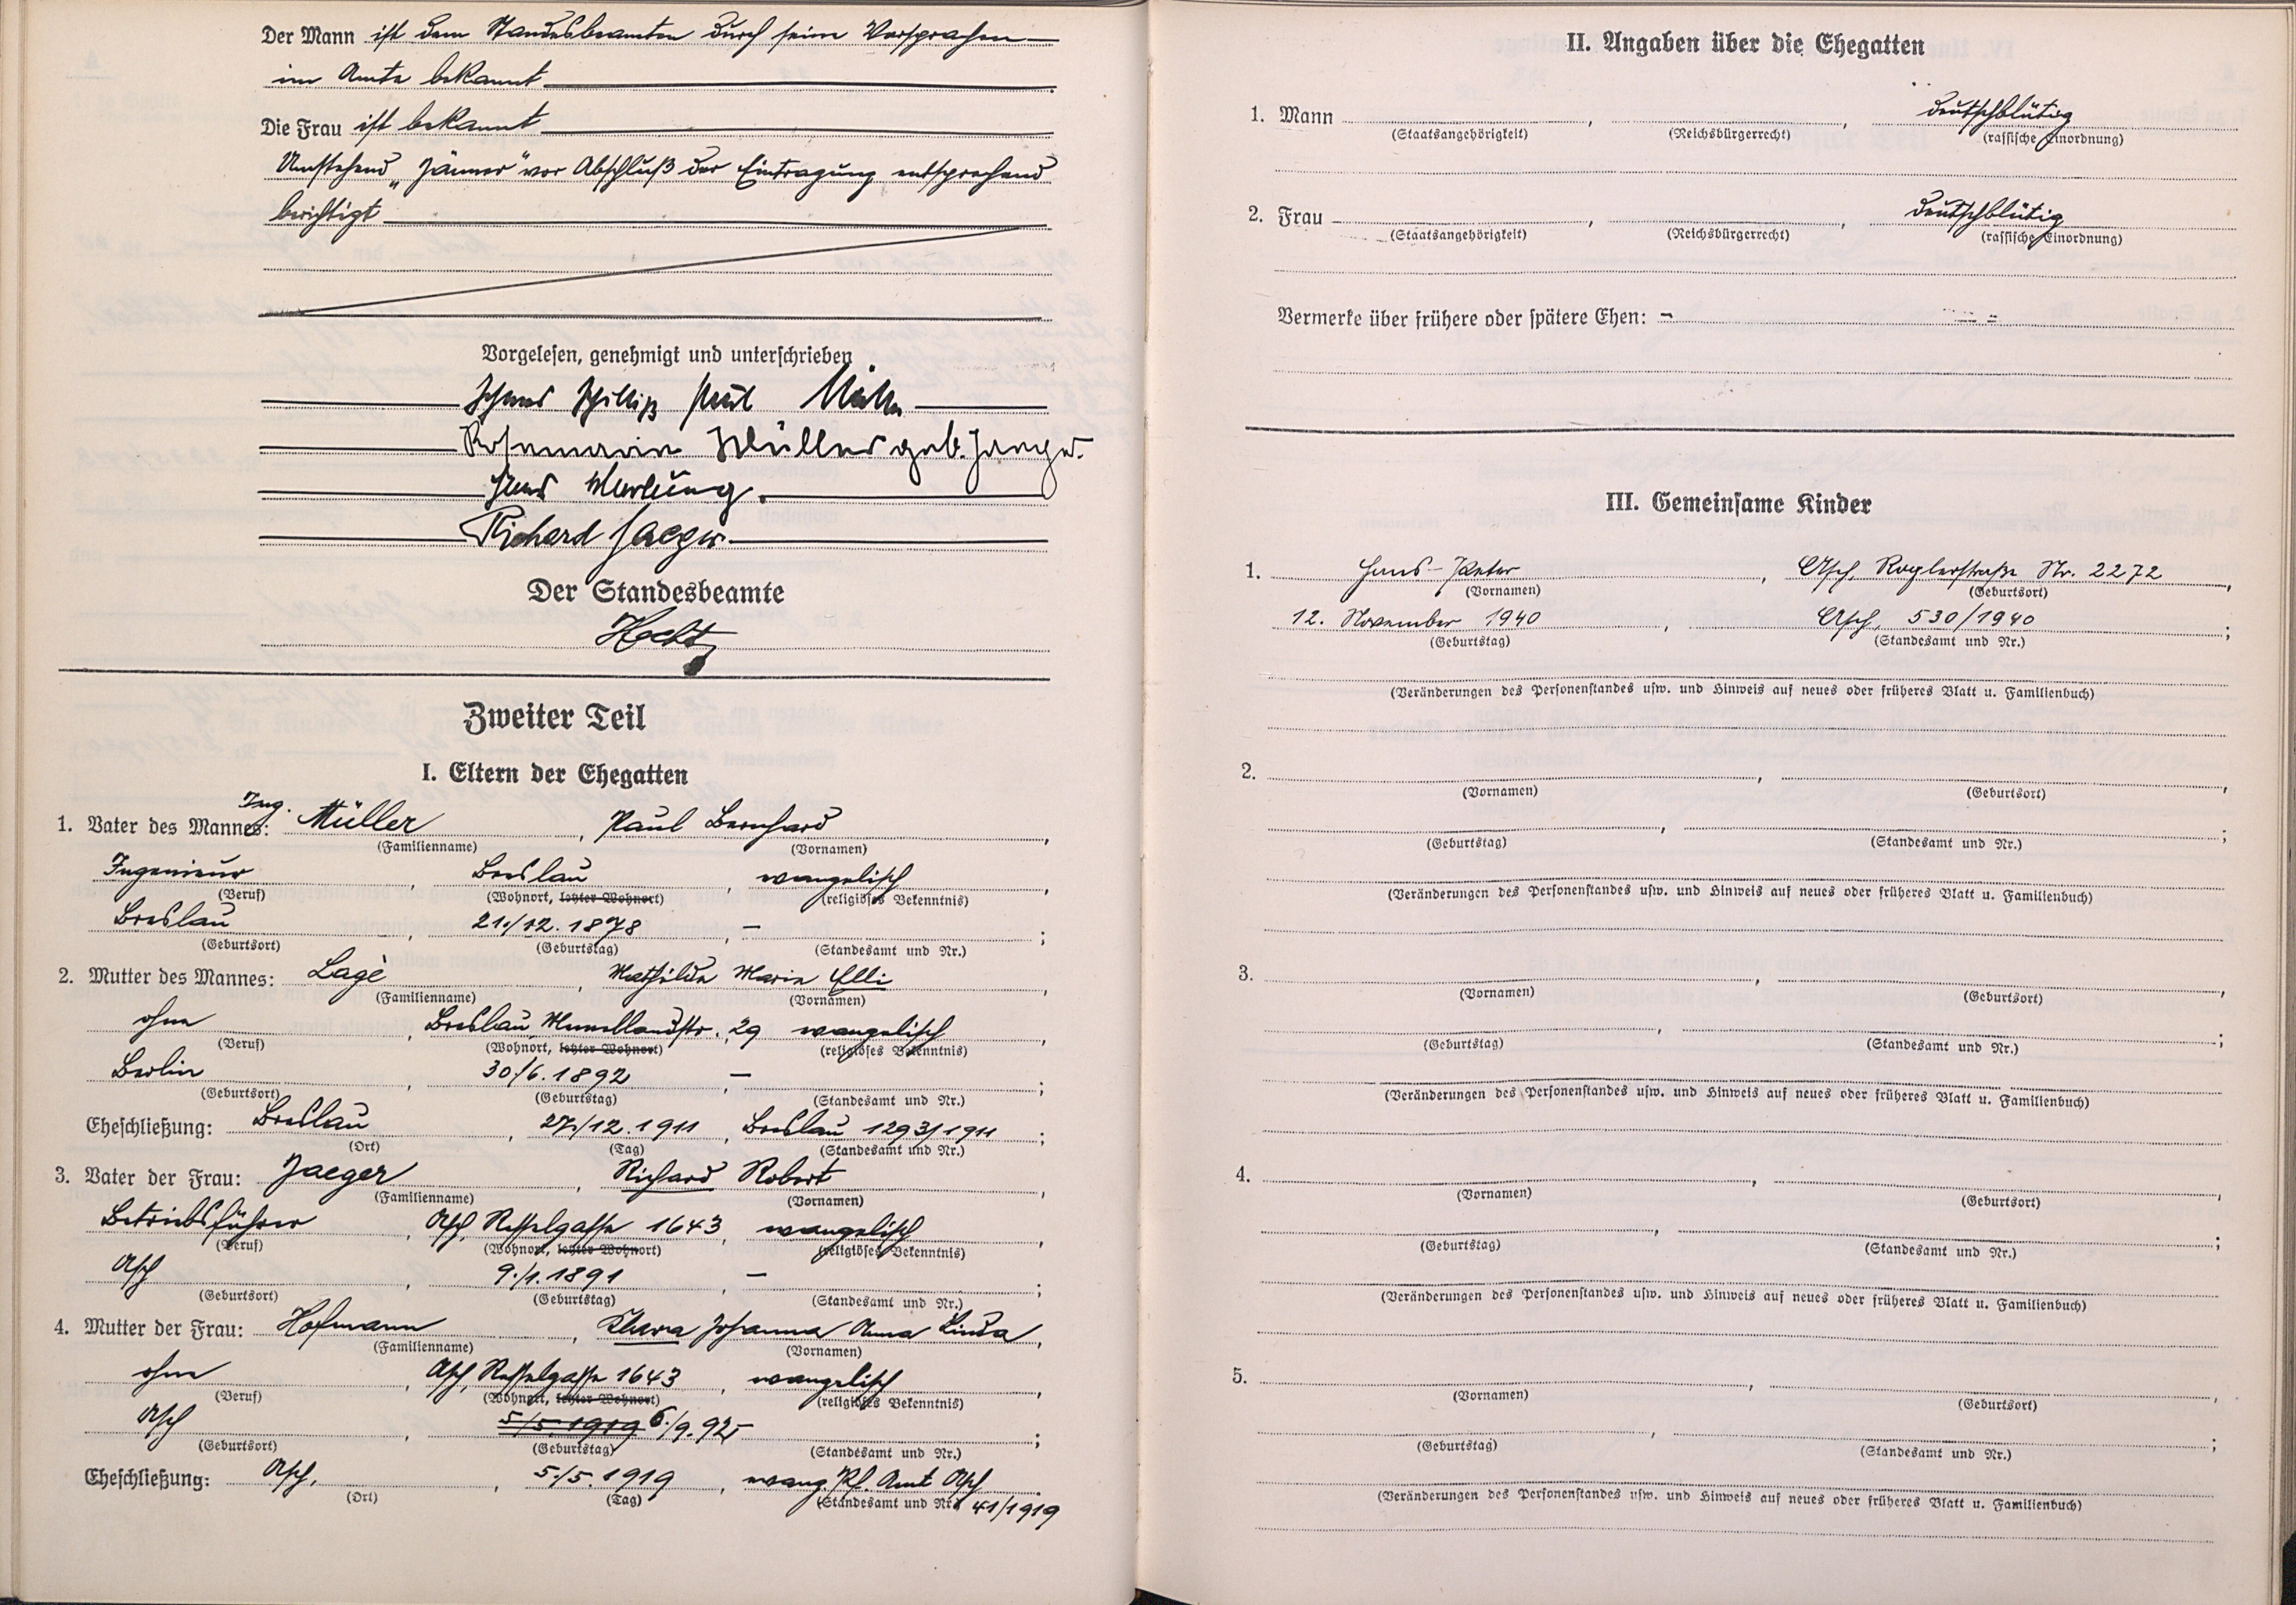 Der Mann ist dem Standesbeamten durch seine Vorsprachen
im Amte bekannt
Die Frau ist bekannt
Umstehend „Jänner" vor Abschluß der Eintragung entsprechend
berichtigt
Vorgelesen, genehmigt und unterschrieben
Paul
Rosemarie Müller geb. Jaeger.
Hans
Richard Jaeger
Der Standesbeamte
Hecht
Zweiter Teil
I. Eltern der Ehegatten
Ing.
1. Vater des Mannes: Müller, Paul Bernhard,
(Familienname) (Vornamen)
Ingenieur, Breslau, evangelisch,
(Beruf) (Wohnort, letzter Wohnort) (religiöses Bekenntnis)
Breslau, 21./12. 1878, –;
(Geburtsort) (Geburtstag) (Standesamt und Nr.)
2. Mutter des Mannes: Lagè, Mathilde Marie Elli,
(Familienname) (Vornamen)
ohne, Breslau, 29 evangelisch,
(Beruf) (Wohnort, letzter Wohnort) (religiöses Bekenntnis)
Berlin, 30./6. 1892, –;
(Geburtsort) (Geburtstag) (Standesamt und Nr.)
Eheschließung: Breslau, 27./12. 1911, Breslau 1293/1911;
(Ort) (Tag) (Standesamt und Nr.)
3. Vater der Frau: Jaeger, Richard Robert,
(Familienname) (Vornamen)
Betriebsführer, Asch, Resselgasse 1643, evangelisch,
(Beruf) (Wohnort, letzter Wohnort) (religiöses Bekenntnis)
Asch, 9./1. 1891, –;
(Geburtsort) (Geburtstag) (Standesamt und Nr.)
4. Mutter der Frau: Hofmann, Klara Johanna Anna Linda,
(Familienname) (Vornamen)
ohne, Asch, Resselgasse 1643, evangelisch,
(Beruf) (Wohnort, letzter Wohnort) (religiöses Bekenntnis)
Asch, 5./5. 1919 6./9. 92, –;
(Geburtsort) (Geburtstag) (Standesamt und Nr.)
Eheschließung: Asch, 5./5. 1919, evang. Pf. Amt Asch
(Ort) (Tag) (Standesamt und Nr.) 41/1919
II. Angaben über die Ehegatten
1. Mann, , deutschblütig
(Staatsangehörigkeit) (Reichsbürgerrecht) (rassische Einordnung)
2. Frau, , deutschblütig
(Staatsangehörigkeit) (Reichsbürgerrecht) (rassische Einordnung)
Vermerke über frühere oder spätere Ehen: –
III. Gemeinsame Kinder
1. Hans-Peter, Asch, Roglerstraße Nr. 2272,
(Vornamen) (Geburtsort)
12. November 1940, Asch, 530/1940;
(Geburtstag) (Standesamt und Nr.)
(Veränderungen des Personenstandes usw. und Hinweis auf neues oder früheres Blatt u. Familienbuch)
2. , ,
(Vornamen) (Geburtsort)
, ;
(Geburtstag) (Standesamt und Nr.)
(Veränderungen des Personenstandes usw. und Hinweis auf neues oder früheres Blatt u. Familienbuch)
3. , ,
(Vornamen) (Geburtsort)
, ;
(Geburtstag) (Standesamt und Nr.)
(Veränderungen des Personenstandes usw. und Hinweis auf neues oder früheres Blatt u. Familienbuch)
4. , ,
(Vornamen) (Geburtsort)
, ;
(Geburtstag) (Standesamt und Nr.)
(Veränderungen des Personenstandes usw. und Hinweis auf neues oder früheres Blatt u. Familienbuch)
5. , ,
(Vornamen) (Geburtsort)
, ;
(Geburtstag) (Standesamt und Nr.)
(Veränderungen des Personenstandes usw. und Hinweis auf neues oder früheres Blatt u. Familienbuch)